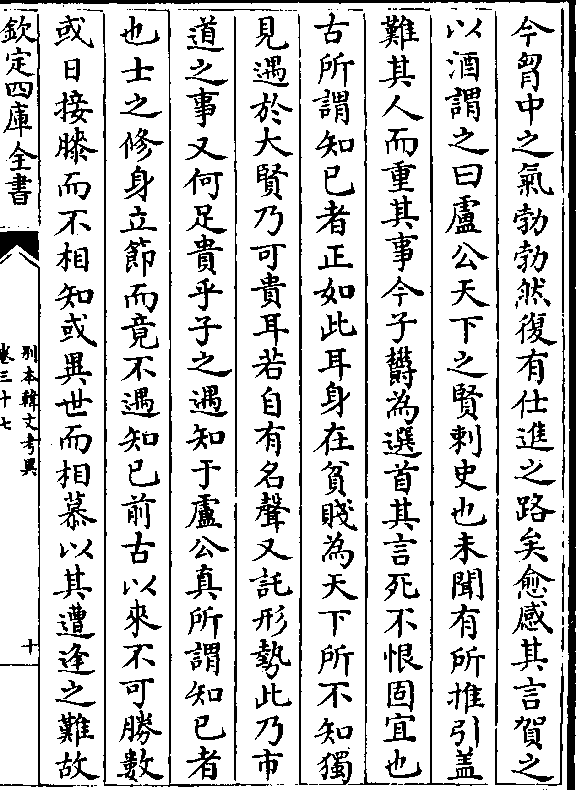 今胷中之氣勃勃然復有仕進之路矣愈感其言賀之
以酒謂之曰盧公天下之賢刺史也未聞有所推引盖
難其人而重其事今子欝為選首其言死不恨固宜也
古所謂知已者正如此耳身在貧賤為天下所不知獨
見遇於大賢乃可貴耳若自有名聲又託形勢此乃市
道之事又何足貴乎子之遇知于盧公真所謂知已者
也士之修身立節而竟不遇知已前古以來不可勝數
或日接膝而不相知或異世而相慕以其遭逢之難故
欽定四庫全書
别本韓文考異
卷三十七
十